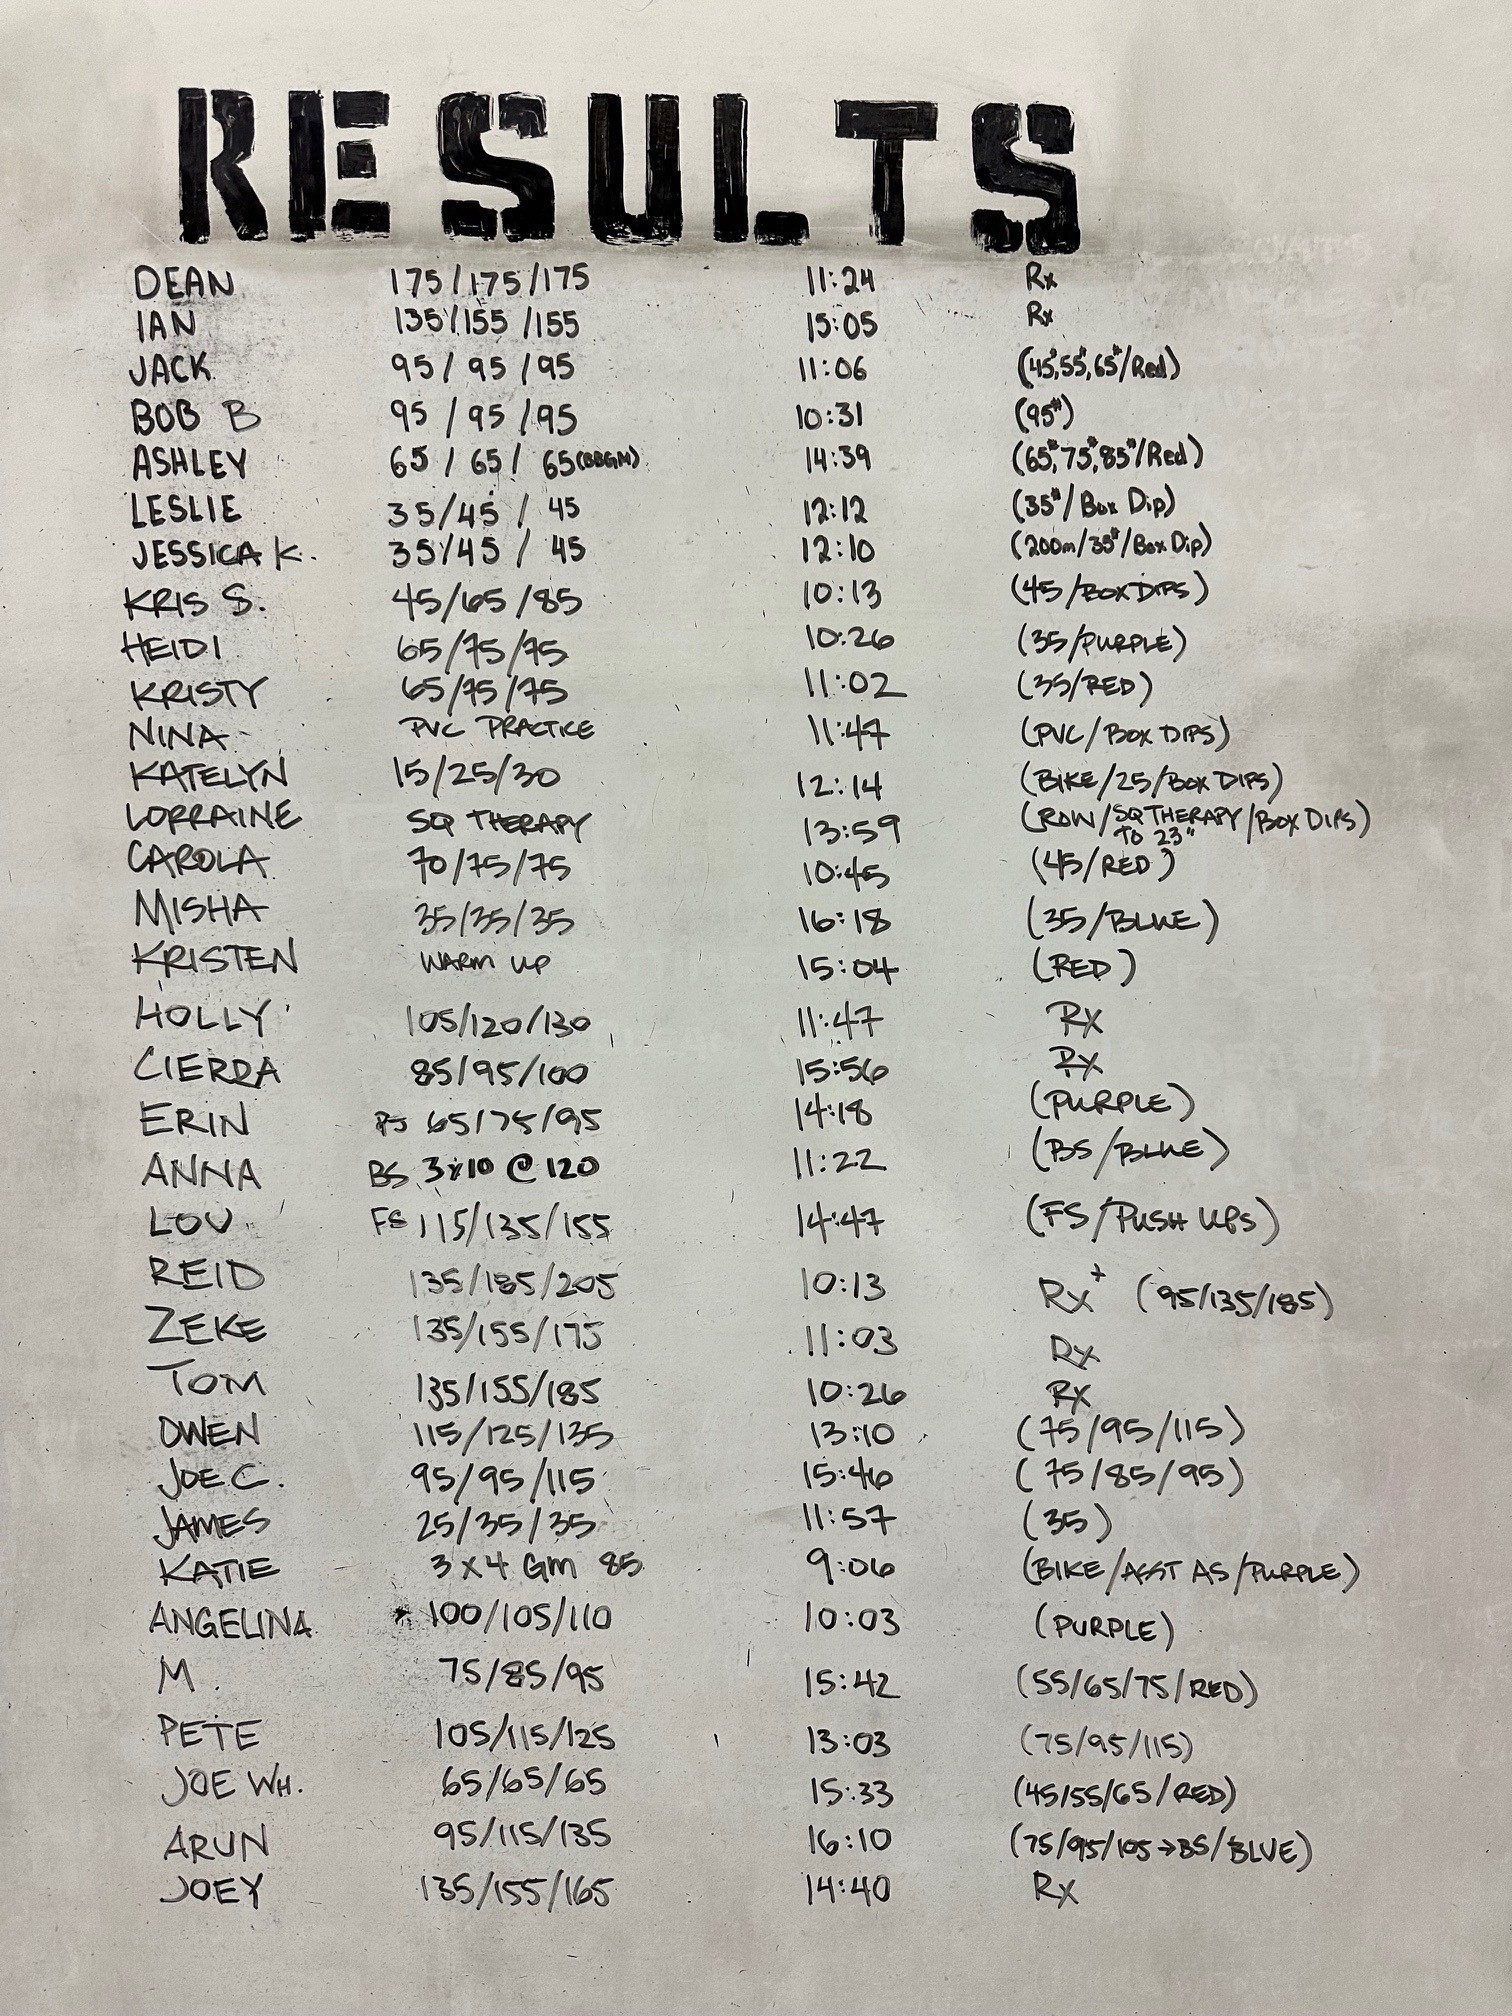 RESULTS
DEAN 175/175/175 11:24 Rx
IAN 135/155/155 15:05 Rx
JACK 95/95/95 11:06 (45#,55#,65#/Red)
BOB B 95/95/95 10:31 (95#)
ASHLEY 65/65/65(BBGM) 14:39 (65#,75#,85#/Red)
LESLIE 35/45/45 12:12 (35#/Box Dip)
JESSICA K. 35/45/45 12:10 (200m/35#/Box Dip)
KRIS S. 45/65/85 10:13 (45/BOX DIPS)
HEIDI 65/75/75 10:26 (35/PURPLE)
KRISTY 65/75/75 11:02 (35/RED)
NINA PVC PRACTICE 11:47 (PVC/BOX DIPS)
KATELYN 15/25/30 12:14 (BIKE/25/BOX DIPS)
LORRAINE SQ THERAPY 13:59 (ROW/SQ THERAPY TO 23"/BOX DIPS)
CAROLA 70/75/75 10:45 (45/RED)
MISHA 35/35/35 16:18 (35/BLUE)
KRISTEN WARM UP 15:04 (RED)
HOLLY 105/120/130 11:47 Rx
CIERRA 85/95/100 15:56 Rx
ERIN 65/75/95 14:18 (PURPLE)
ANNA BS 3x10 @ 120 11:22 (BS/BLUE)
LOU FS 115/135/155 14:47 (FS/PUSH UPS)
REID 135/185/205 10:13 Rx+ (95/135/185)
ZEKE 135/155/175 11:03 Rx
TOM 135/155/185 10:26 Rx
OWEN 115/125/135 13:10 (75/95/115)
JOE C. 95/95/115 15:46 (75/85/95)
JAMES 25/35/35 11:57 (35)
KATIE 3x4 GM 85 9:06 (BIKE/ASST AS/PURPLE)
ANGELINA 100/105/110 10:03 (PURPLE)
M. 75/85/95 15:42 (55/65/75/RED)
PETE 105/115/125 13:03 (75/95/115)
JOE WH. 65/65/65 15:33 (45/55/65/RED)
ARUN 95/115/135 16:10 (75/95/105→BS/BLUE)
JOEY 135/155/165 14:40 Rx